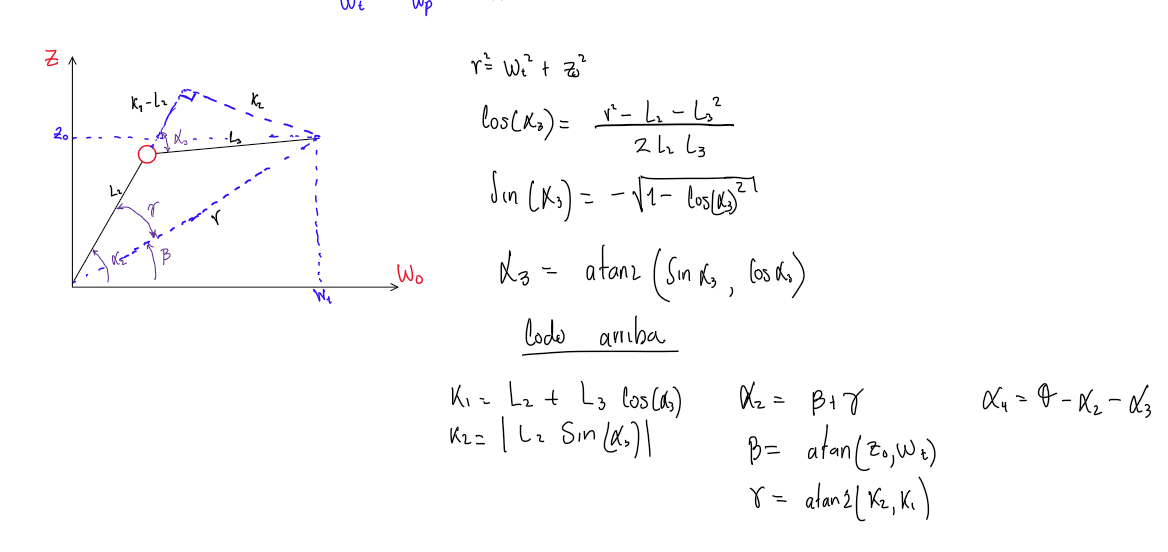 W_t W_p
Z
K₁-L₂
K₂
Z₀
α₃
L₃
L₂
γ
r
α₂
β
W₀
W_t
r² = W_t² + Z₀²
Cos(α₃) = (r² - L₂ - L₃²) / (2 L₂ L₃)
Sin(α₃) = -√(1 - Cos(α₃)²)
α₃ = atan2(Sin α₃, Cos α₃)
Codo arriba
K₁ = L₂ + L₃ Cos(α₃)
K₂ = |L₂ Sin(α₃)|
α₂ = β+γ
β = atan(Z₀,W_t)
γ = atan2(K₂,K₁)
α₄ = θ - α₂ - α₃